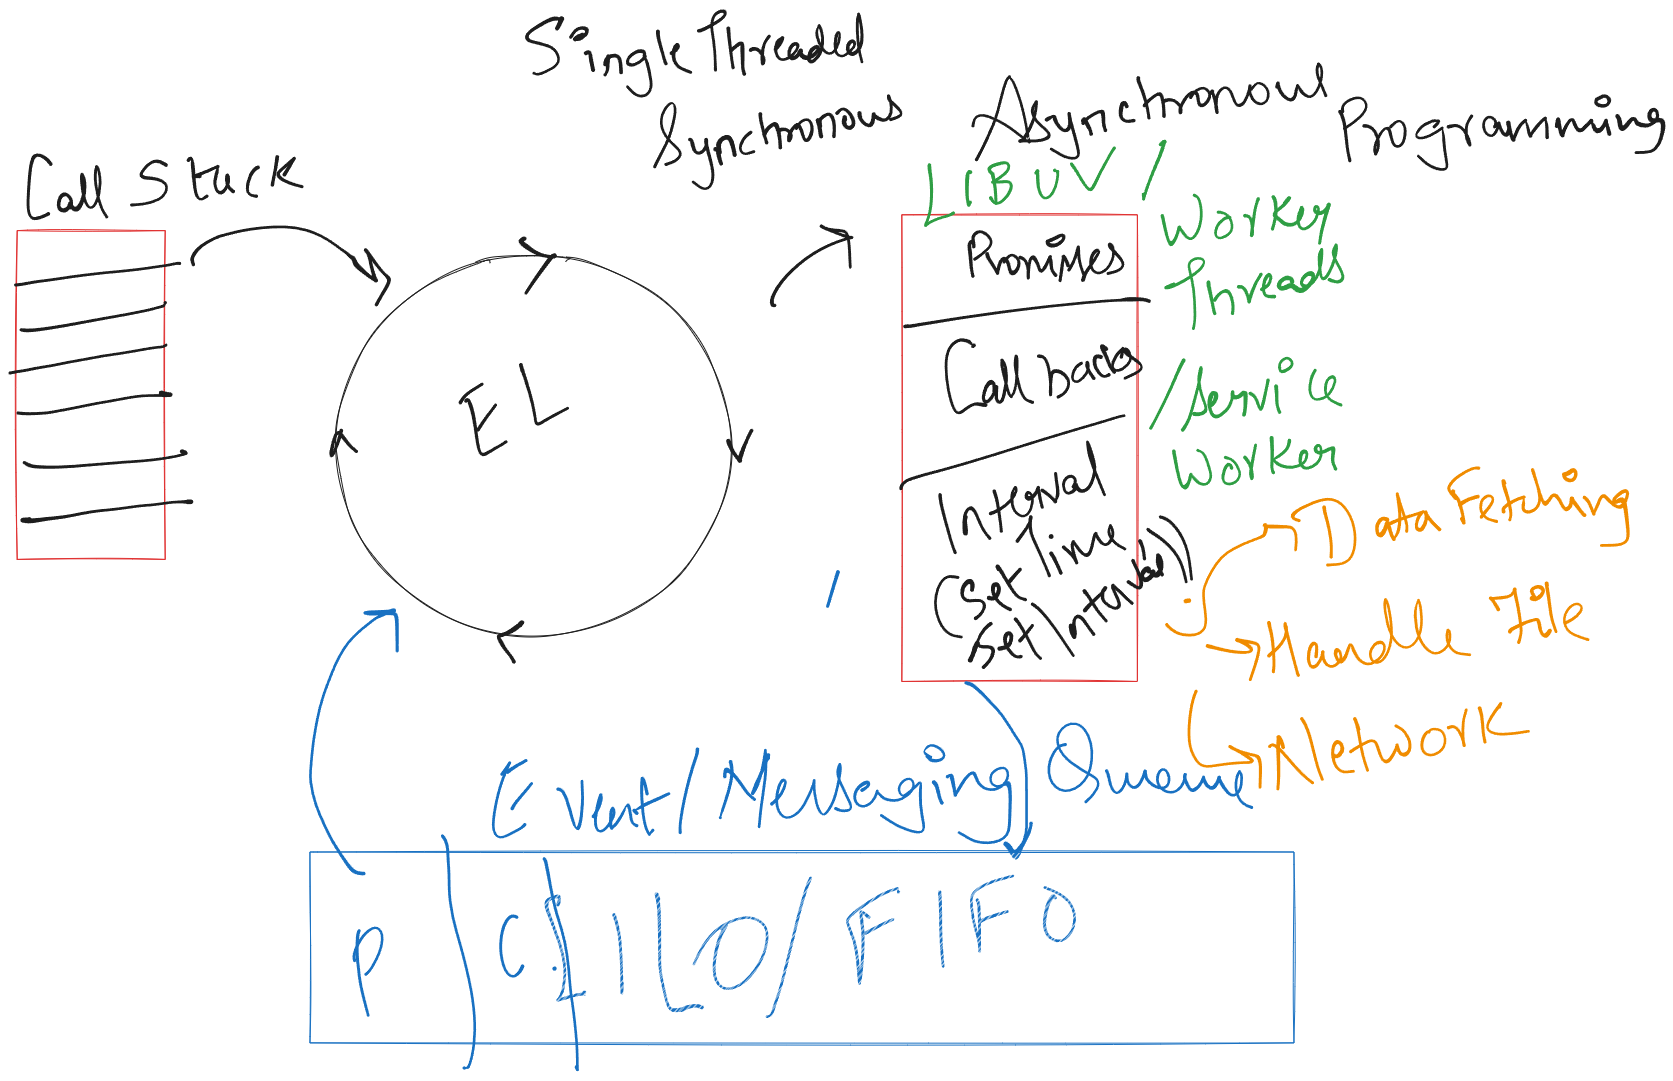 Single Threaded
Synchronous
Asynchronous
Programming
Call Stack
LIBUV /
Worker
Threads
/Service
Worker
EL
Promises
Callbacks
Interval
(Set Time
Set Interval))
Data Fetching
Handle File
Network
Event/Messaging Queue
P
C
LILO/FIFO